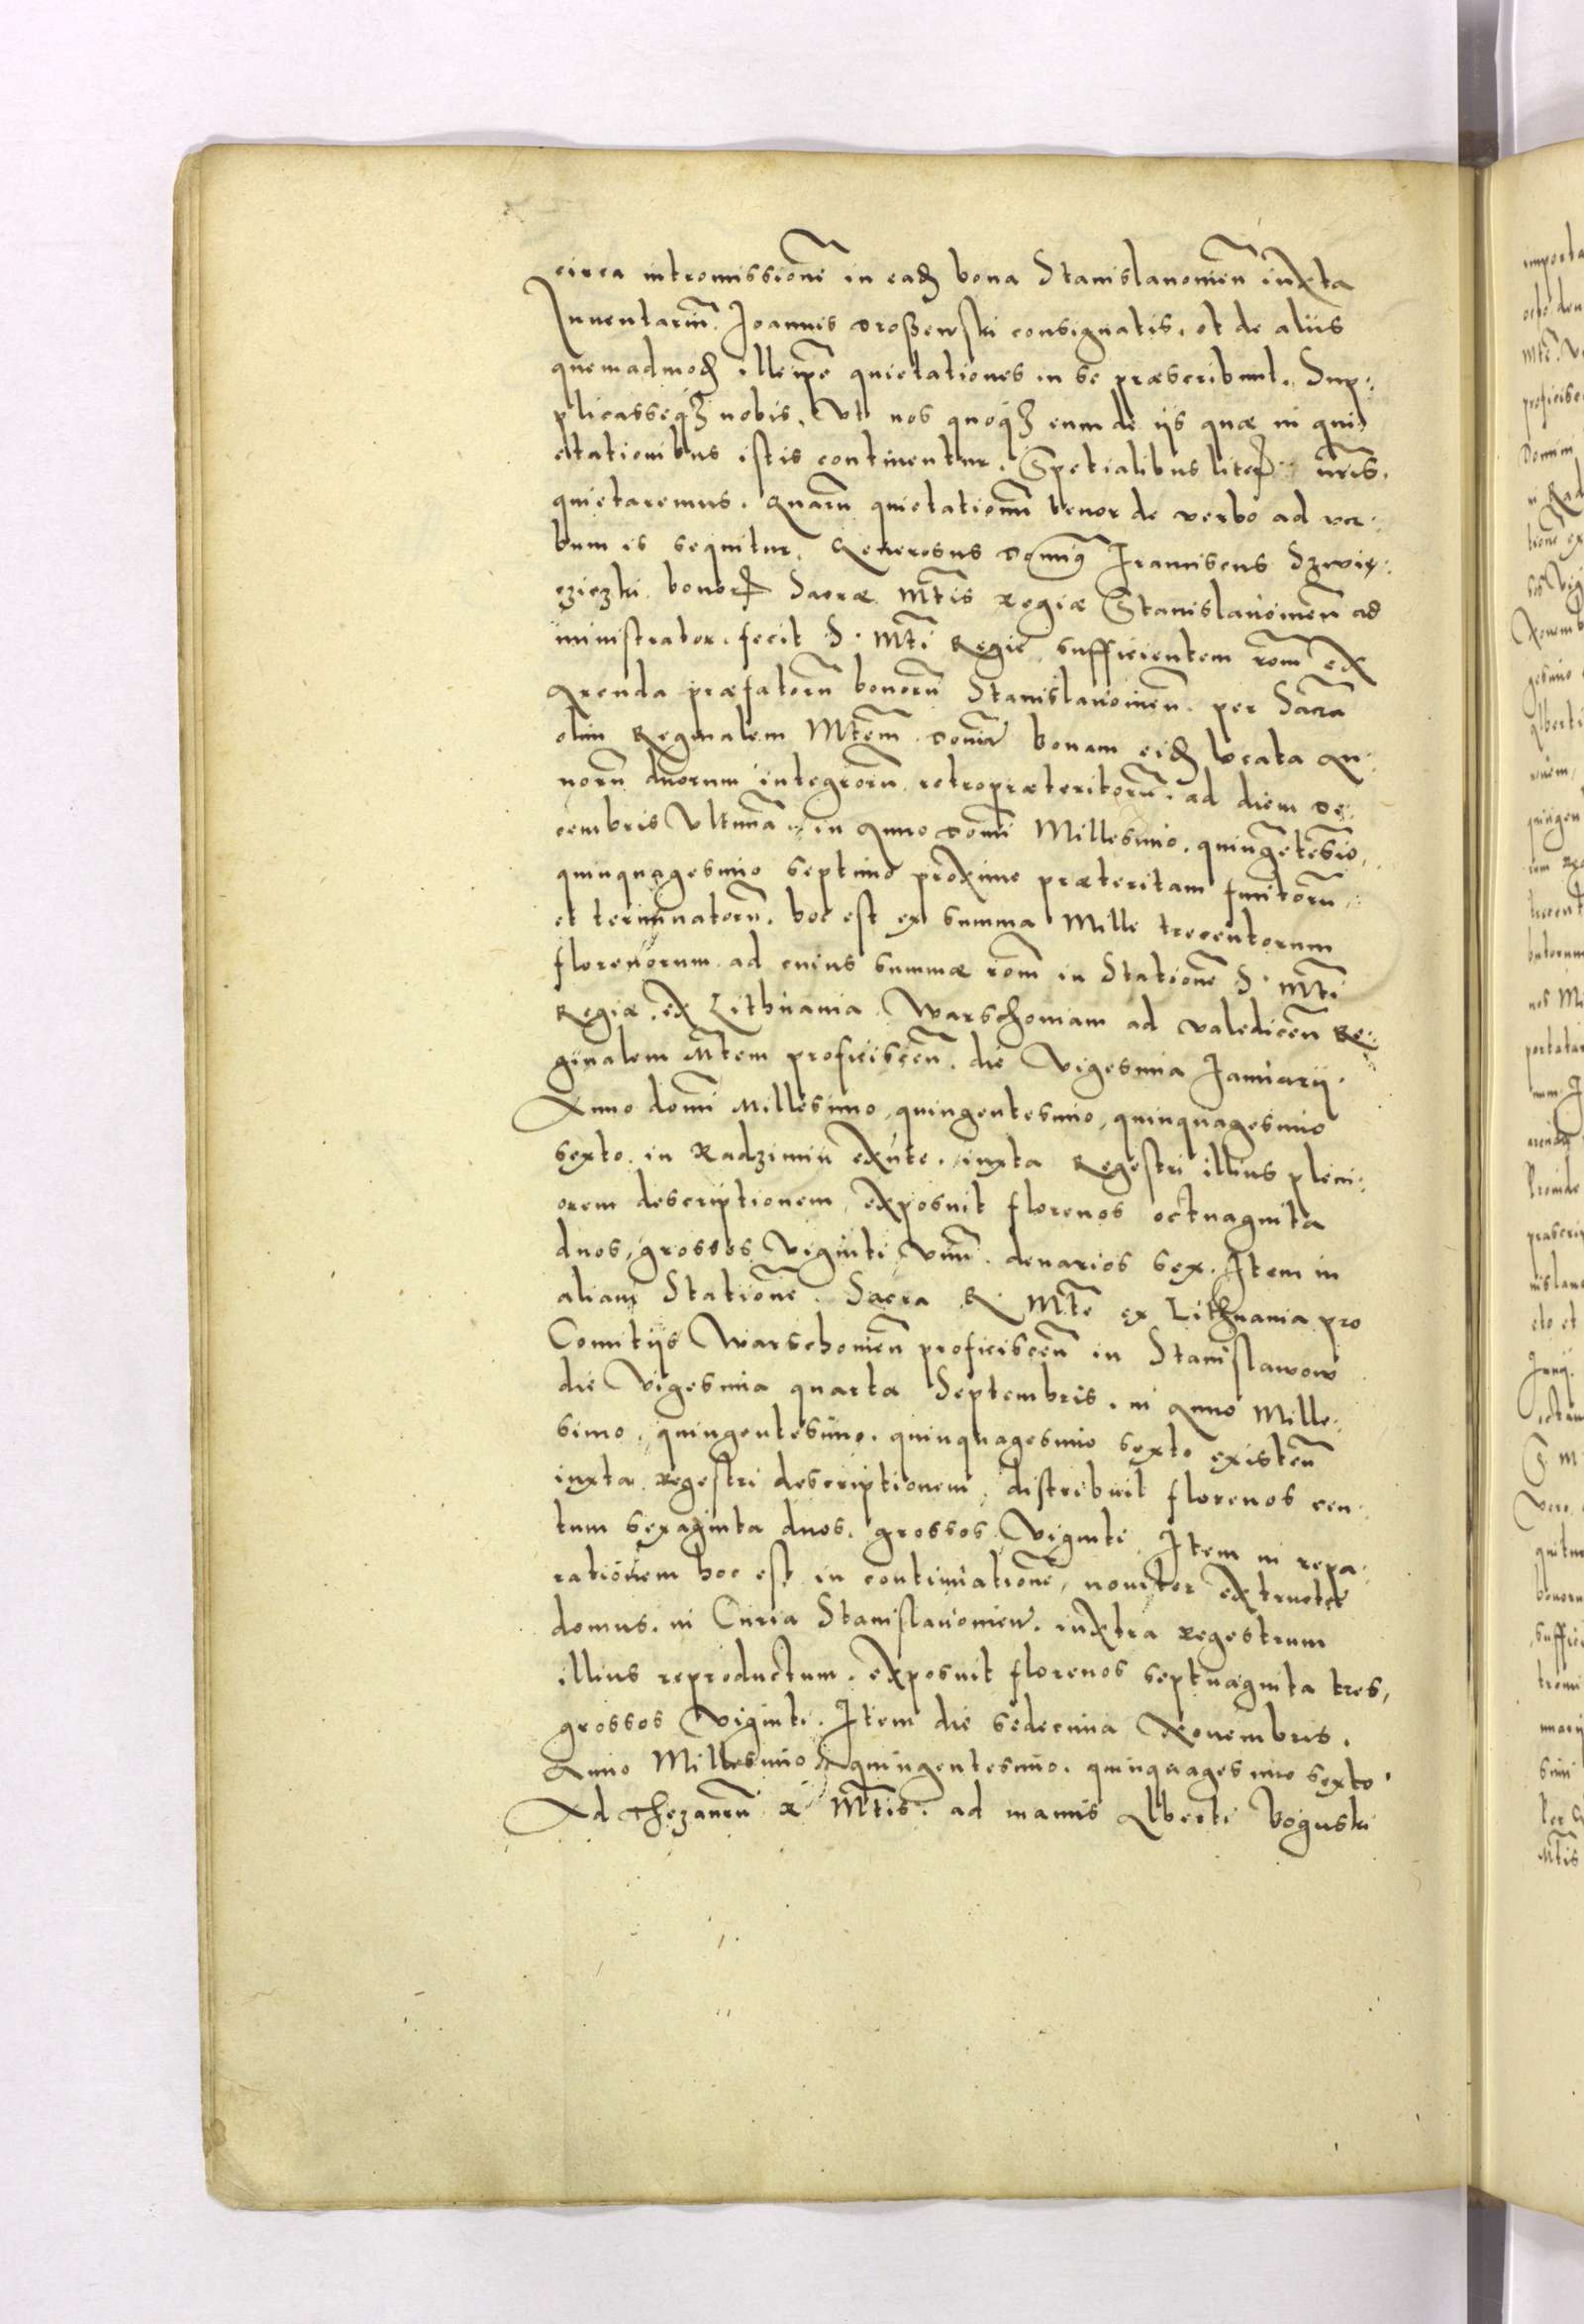 circa intromissionē in eadē bona Stanislanonien̄ iuxta
Inuentariū Joannis Droßewski consignatis, et de alijs
quemadmodū illeipse quietationes in se præscribunt. Sup:
plicasseqʒ nobis, Vt nos quoqʒ eum de ijs quæ in qui
etationibus istis continentur. Spetialibus literis nr̄is.
quietaremus. Quarū quietationū tenor de verbo ad ver:
bum is sequitur. Generosus Domīnus Franciscus Szwię:
cziczki bonorū Sacræ Mt̄is Regiæ Stanislauoinen̄ ad
ministrator. fecit S. Mt̄i Regiē sufficientem rōm ex
Arenda præfatorū bonorū Stanislauoinen̄. per Sacrā
olim Reginalem Mt̄em Domīa bonam eidē locata An:
norū duorum integrorū retropræteritorū. ad diem De:
cembris Vltimā in Anno Domī Millesimo. quingētesīo,
quinquagesimo septimo proximo præteritam finitorū
et terminatorū. hoc est ex summa Mille trecentorum
florenorum ad cuius summæ rōm in Stationē S. Mt̄i
Regiæ. ex Lithuania Warschouiam ad valedicen̄ Re:
ginalem Mt̄em proficiscen̄. die Vigesima Januarij.
Anno domī Millesimo, quingentesimo, quinquagesimo
sexto. in Radzimin exn̄te. iuxta Regestri illius pleni:
orem descriptionem, exposuit florenos octuaginta
duos, grossos Viginti Vnū. denarios sex. Item in
aliam Stationē. Sacra R. Mt̄e ex Lithuania pro
Comitijs Warschonien̄ proficiscen̄ in Stanislawow
die Vigesima quarta Septembris. in Anno Mille:
simo, quingentesimo. quinquagesimo sexto existen̄
iuxta Regestri descriptionem, distribuit florenos cen:
tum sexaginta duos. grossos Viginti. Item in repa:
rationem hoc est in continuationē, nouiter extructæ
domus. in Curia Stanislauonien̄. iuxtra Regestrum
illius reproductum. exposuit florenos septuaginta tres,
grossos Viginti. Item die sedecima Nouembris.
Anno Millesimo quingentesimo. quinquagesimo sexto
Ad Thezaurū R Mt̄is. ad manus Alberti Boguski